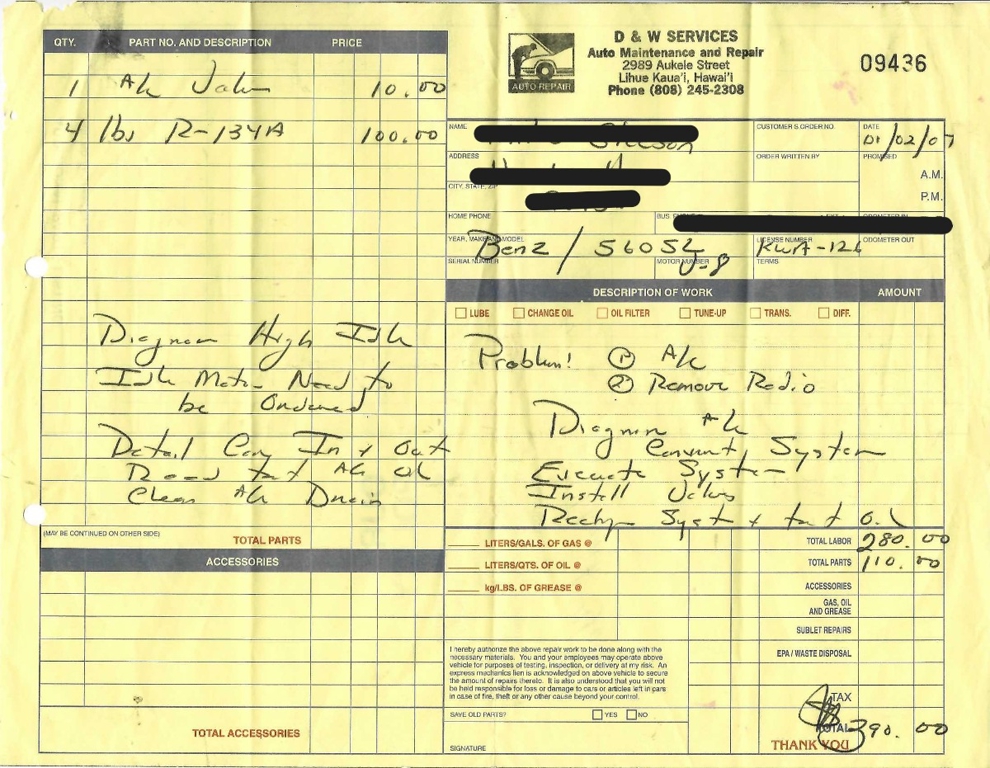 QTY. PART NO. AND DESCRIPTION PRICE
1 A/c Valve 10.00
4 lbs R-134A 100.00
Diagnose High Idle
Idle Motor Need to
be Ordered
Detail Car In + Out
Road test A/c Ok
Clean A/c Drain
(MAY BE CONTINUED ON OTHER SIDE) TOTAL PARTS
ACCESSORIES
TOTAL ACCESSORIES
AUTO REPAIR
D & W SERVICES
Auto Maintenance and Repair
2989 Aukele Street
Lihue Kaua'i, Hawai'i
Phone (808) 245-2308
09436
NAME CUSTOMER'S ORDER NO. DATE 01/02/07
ADDRESS ORDER WRITTEN BY PROMISED A.M.
CITY, STATE, ZIP P.M.
HOME PHONE BUS. ODOMETER IN
YEAR, MAKE AND MODEL Benz / 560SL LICENSE NUMBER KWA-126 ODOMETER OUT
SERIAL NUMBER MOTOR NUMBER V-8 TERMS
DESCRIPTION OF WORK AMOUNT
LUBE CHANGE OIL OIL FILTER TUNE-UP TRANS. DIFF.
Problem! 1 A/c
2 Remove Radio
Diagnose A/c
Convert System
Evacuate System
Install Valves
Recharge Syst + test
LITERS/GALS. OF GAS @ TOTAL LABOR 280.00
LITERS/QTS. OF OIL @ TOTAL PARTS 110.00
kg/LBS. OF GREASE @ ACCESSORIES
GAS, OIL
AND GREASE
SUBLET REPAIRS
EPA / WASTE DISPOSAL
I hereby authorize the above repair work to be done along with the
necessary materials. You and your employees may operate above
vehicle for purposes of testing, inspection, or delivery at my risk. An
express mechanics lien is acknowledged on above vehicle to secure
the amount of repairs thereto. It is also understood that you will not
be held responsible for loss or damage to cars or articles left in cars
in case of fire, theft or any other cause beyond your control.
TAX
SAVE OLD PARTS? YES NO
TOTAL 390.00
SIGNATURE THANK YOU